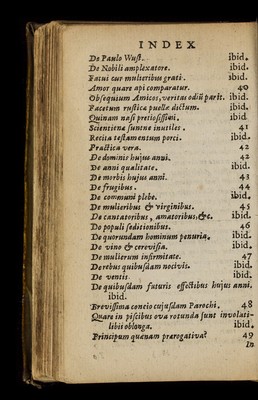 INDEX
De Paulo Wust. ibid.
De Nobili amplexatore. ibid.
Fatui cur mulieribus grati. ibid.
Amor quare api comparatur. 40
Obsequium Amicos, veritas odiũ parit. ibid.
Facetum rustica puellæ dictum. ibid.
Quinam nasi pretiosissimi. ibid
Scientiene suntne inutiles. 41
Recita testamentum porci. ibid.
Practica vera. 42
De dominis hujus anni. 42
De anni qualitate. ibid.
De morbis hujus anni. 43
De frugibus. 44
De communi plebe. ibid.
De mulieribus & virginibus. 45
De cantatoribus, amatoribus, &c. ibid.
De populi seditionibus. 46
De quorundam hominum penuria. ibid.
De vino & cerevisia. ibid.
De mulierum infirmitate. 47
De rebus quibusdam nocivis. ibid.
De ventis ibid.
De quibusdam futuris effectibus hujus anni.
ibid.
Brevissima concio cujusdam Parochi. 48
Quare in piscibus ova rotunda sunt involuti-
libii oblonga. ibid.
Principum quænam prærogativa? 49
In